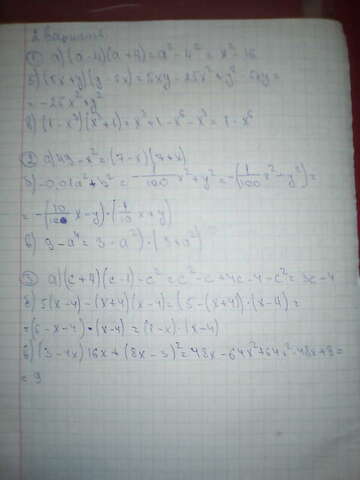 2 вариант
① а) (a-4)(a+4) = a² - 4² = x² 16
б) (5x+y)(y-5x) = 5xy - 25x² + y² - 5xy =
= -25x² + y²
в) (1-x³)(x³+1) = x³ + 1 - x⁶ - x³ = 1 - x⁶
② а) 49 - x² = (7-x)(7+x)
б) -0,01a² + b² = -1/100 x² + y² = -(1/100 x² - y²) =
x - y) · (1/10 x + y)
в) 9 - a⁴ = 3 - a²) · (3 + a²)
③ а) (c+4)(c-1) - c² = c² - c + 4c - 4 - c² = 3c - 4
б) 5(x-4) - (x+4)(x-4) = (5-(x+4)) · (x-4) =
= (5-x-4) · (x-4) = (1-x) · (x-4)
в) (3-4x) 16x + (8x-3)² = 48x - 64x² + 64x² - 48x + 9 =
= 9